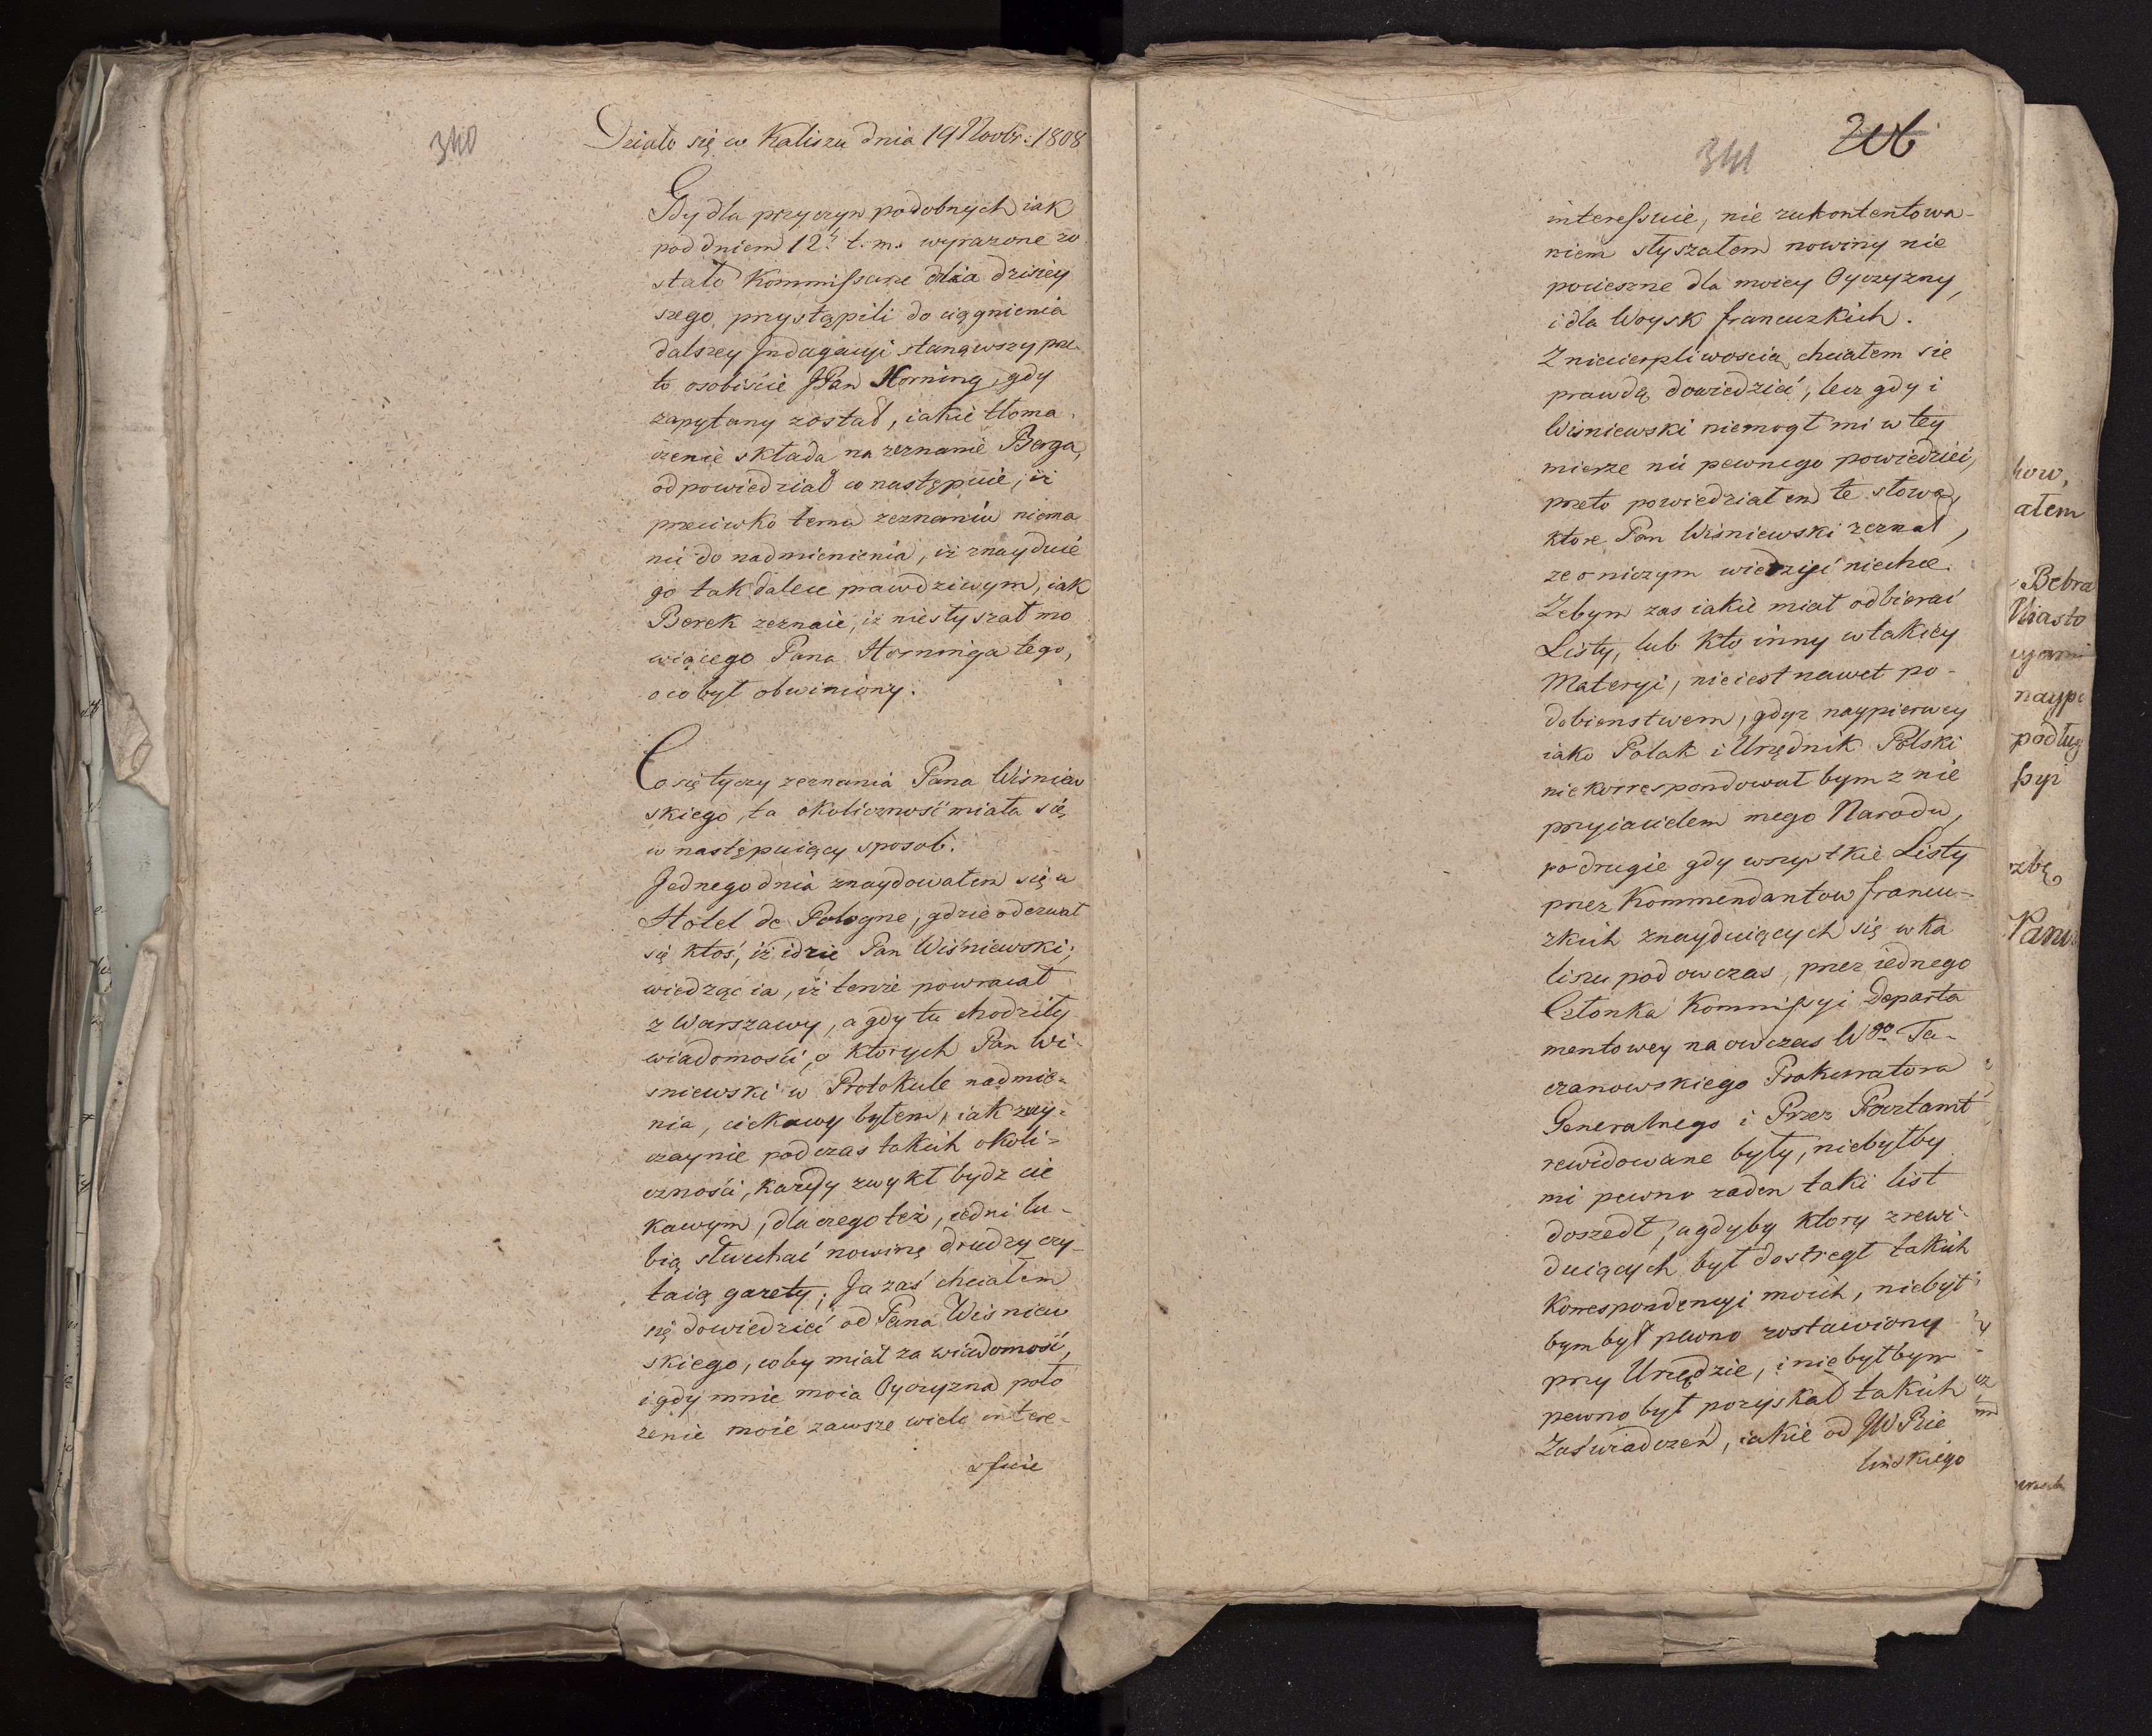 340
Działo się w Kaliszu dnia 19 Novbr: 1808
Gdy dla przyczyn podobnych iak
pod dniem 12. t. m. wyrazone zo
stało Kommissarze dnia dzisiey
szego przystąpili do ciągnienia
dalszey Indagacyi stanąwszy prze
to osobiście JPan Horning, gdy
zapytany został, iakie tłoma
czenie składa na zeznanie Berga,
odpowiedział co następuie, iż
przeciwko temu zeznaniu niema
nic do nadmienienia, iż znayduie
go tak dalece prawdziwym, iak
Berek zeznaie, iż nie słyszał mo
wiącego Pana Horninga tego,
o co był obwiniony.
Co się tyczy zeznania Pana Wiśniew
skiego, ta okoliczność miała się
w następuiący sposob.
Jednego dnia znaydowałem się w
Hotel de Pologne, gdzie odezwał
się ktoś, iż idzie Pan Wiśniewski;
wiedząc ia, iż tenże powracał
z Warszawy, a gdy tu chodziły
wiadomości, o ktorych Pan Wi-
sniewski w Protokule nadmie=
nia, ciekawy byłem, iak zwy=
czaynie podczas takich okoli=
czności, każdy zwykł bydz cie
kawym, dla czego też, iedni lu-
bią słuchać nowinę drudzy czy-
taią gazety; Ja zaś chciałem
się dowiedzieć od Pana Wiśniew
skiego, coby miał za wiadomość,
i gdy mnie moia Oyczyzna poło
żenie moie zawsze wiele intere-
ssuie
341
206
interessuie, nie zukontentowa-
niem słyszałem nowiny nie
pocieszne dla moiey Oyczyzny,
i dla Woysk francuzkich.
Z niecierpliwoscią chciałem się
prawdą dowiedzieć, lecz gdy i
Wisniewski niemogł mi w tey
mierze nic pewnego powiedzieć,
przeto powiedziałem te słowa,
ktore Pan Wiśniewski zeznał,
ze o niczym wiedzieć niechce.
Zebym zas iakie miał odbierać
Listy, lub kto inny w takiey
Materyi, nie iest nawet po-
dobienstwem, gdyz naypierwey
iako Polak i Urzędnik Polski
nie korrespondował bym z nie
przyiacielem mego Narodu,
po drugie gdy wszystkie Listy
przez Kommendantow francu-
zkich znayduiących się w Ka
liszu pod owczas, przez iednego
Członka Kommissyi Departa
mentowey na owczas Wgo Ta-
czanowskiego Prokuratora
Generalnego i Przez Pocztamt
rewidowane były, niebyłby
mi pewno zaden taki list
doszedł, a gdyby ktory z rewi-
duiących był dostregł takich
Korrespondencyi moich, niebył
bym był pewno zostawiony
przy Urzędzie, i nie byłbym
pewno był pozyskał takich
Zaświadczeń, iakie od JW Bie
linskiego
how,
ałem
Bebra
Miasto
naype
podług
ssyi